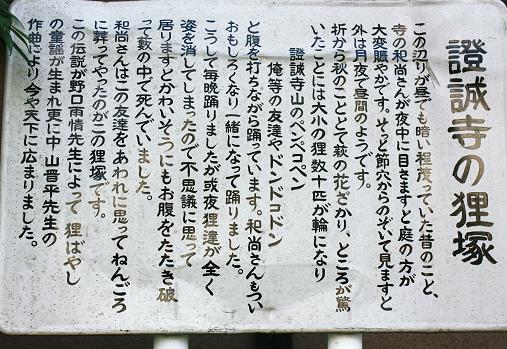 證誠寺の狸塚
この辺りが昼でも暗い程茂っていた昔のこと、
寺の和尚さんが夜中に目さますと庭の方が
大変賑やかです。そっと節穴からのぞいて見ますと
外は月夜で昼間のようです。
折から秋のこととて萩の花ざかり、ところが驚
いたことには大小の狸数十匹が輪になり
證誠寺山のペンペコペン
俺等の友達やドンドコドン
と腹を打ちながら踊っています。和尚さんもつい
おもしろくなり一緒になって踊りました。
こうして毎晩踊りましたが或夜狸達が全く
姿を消してしまったので不思議に思って
居りますとかわいそうにもお腹をたたき破
って薮の中で死んでいました。
和尚さんはこの友達をあわれに思ってねんごろ
に葬ってやったのがこの狸塚です。
この伝説が野口雨情先生によって狸ばやし
の童謡が生まれ更に中山晋平先生の
作曲により今や天下に広まりました。